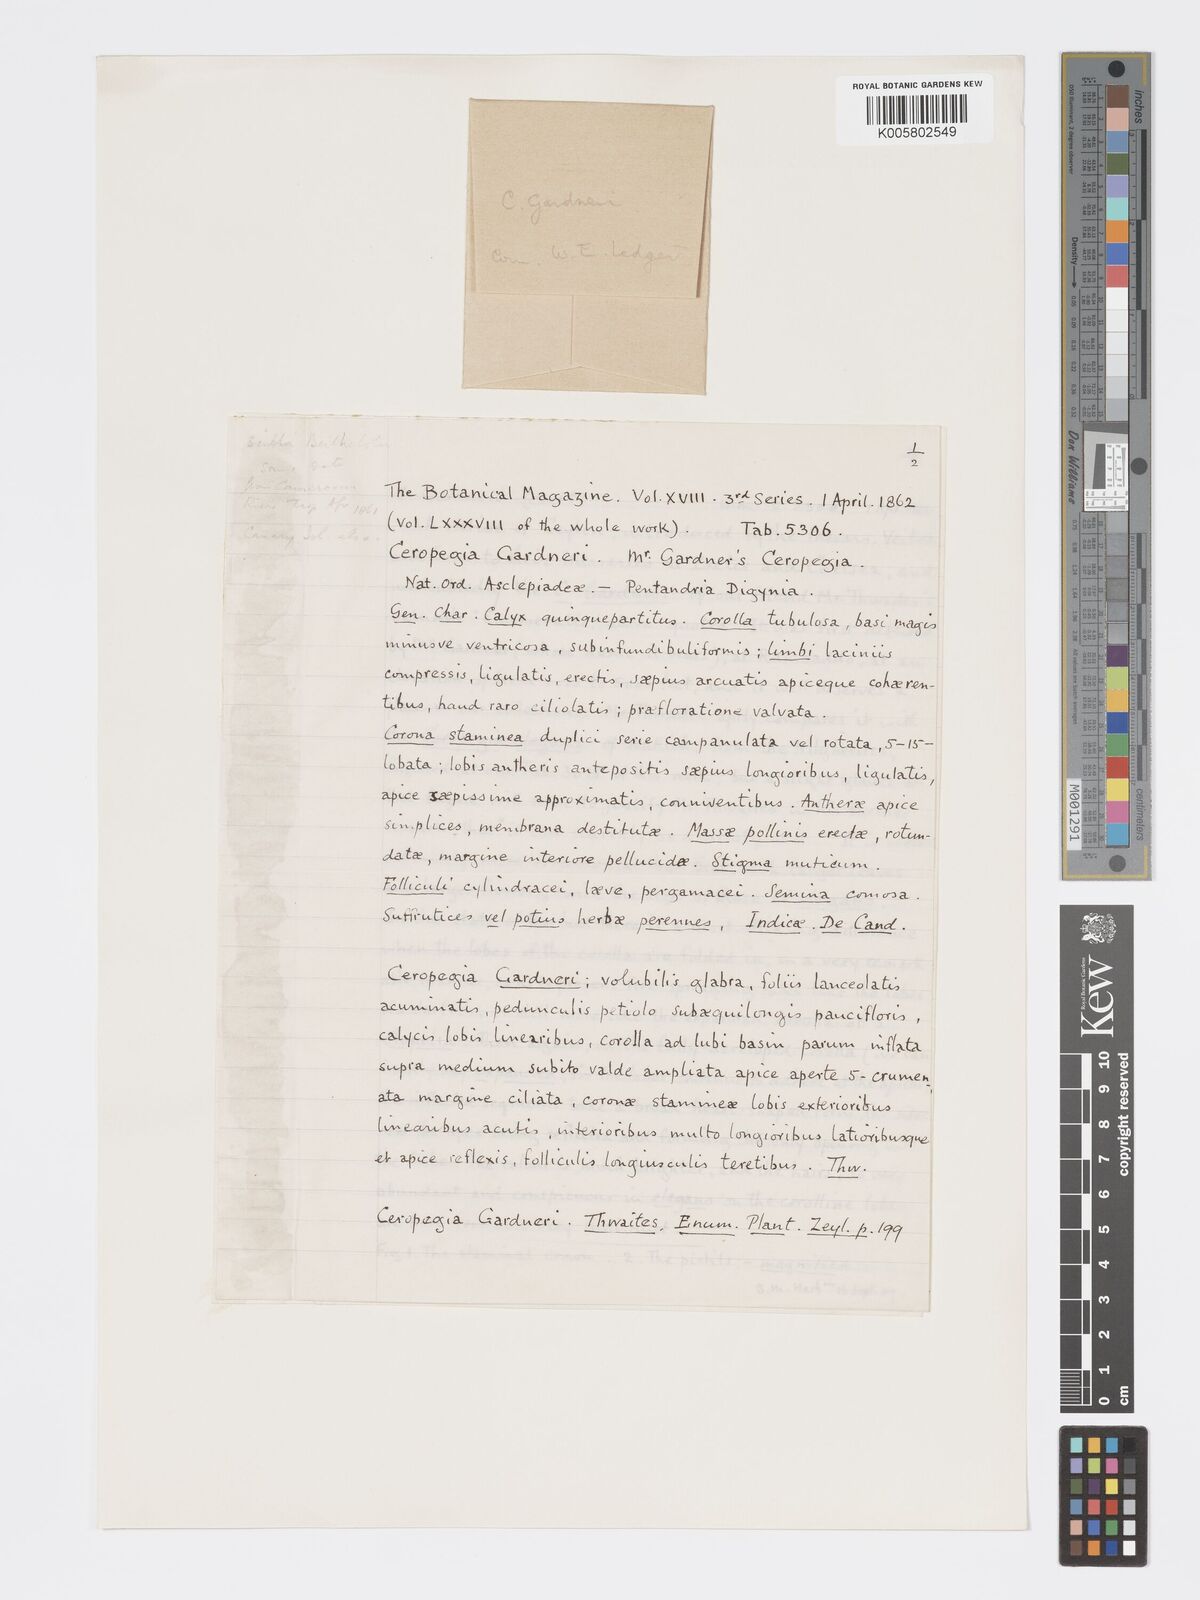 ROYAL BOTANIC GARDENS KEW
K005802549
C. Gardneri
Com. W. E. Ledger
1/2
The Botanical Magazine. Vol. XVIII. 3rd Series. 1 April. 1862
(Vol. LXXXVIII of the whole work). Tab. 5306.
Ceropegia Gardneri. Mr. Gardner's Ceropegia.
Nat. Ord. Asclepiadeæ. — Pentandria Digynia.
Gen. Char. Calyx quinquepartitus. Corolla tubulosa, basi magis
minusve ventricosa, subinfundibuliformis; limbi laciniis
compressis, ligulatis, erectis, sæpius arcuatis apiceque cohæren-
tibus, haud raro ciliolatis; præfloratione valvata.
Corona staminea duplici serie campanulata vel rotata, 5-15-
lobata; lobis antheris antepositis sæpius longioribus, ligulatis,
apice sæpissime approximatis, conniventibus. Antheræ apice
simplices, membrana destitutæ. Massæ pollinis erectæ, rotun-
datæ, margine interiore pellucidæ. Stigma muticum.
Folliculi cylindracei, læve, pergamacei. Semina comosa.
Suffrutices vel potius herbæ perennes, Indicæ. De Cand.
Ceropegia Gardneri; volubilis glabra, foliis lanceolatis
acuminatis, pedunculis petiolo subæquilongis paucifloris,
calycis lobis linearibus, corolla ad lubi basin parum inflata
supra medium subito valde ampliata apice aperte 5-crumen-
ata margine ciliata, coronæ stamineæ lobis exterioribus
linearibus acutis, interioribus multo longioribus latioribusque
et apice reflexis, folliculis longiusculis teretibus. Thw.
Ceropegia Gardneri. Thwaites, Enum. Plant. Zeyl. p. 199
inches
centimeters
Density
Don Williams
M001291
Royal Botanic Gardens
Kew
copyright reserved
0 1 2 3 4 5 6 7 8 9 10
cm